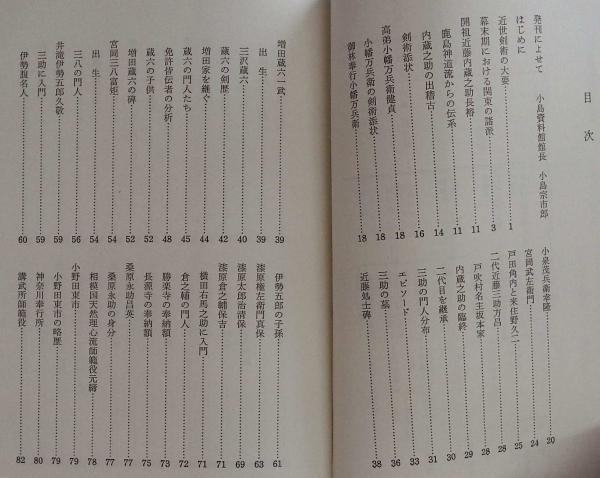 目次
発刊によせて 小島資料館館長 小島宗市郎
はじめに
近世剣術の大要……1
幕末期における関東の諸派……3
開祖近藤内蔵之助長裕……11
鹿島神道流からの伝系……11
内蔵之助の出稽古……14
剣術添状……16
高弟小幡万兵衛健貞……18
小幡万兵衛の剣術添状……18
御林奉行小幡万兵衛……18
小泉茂兵衛幸隆……20
宮岡武左衛門……24
戸田角内と来住野久二……25
二代近藤三助方昌……28
戸吹村名主坂本家……28
内蔵之助の臨終……29
二代目を継承……30
三助の門人分布……31
エピソード……33
三助の墓……36
近藤処士碑……38
増田蔵六一武……39
出生……39
三沢蔵六……40
蔵六の剣歴……42
増田家を継ぐ……44
蔵六の門人たち……45
免許皆伝者の分析……48
蔵六の子供……52
増田蔵六の碑……52
宮岡三八富炬……54
出生……54
三八の門人……56
井滝伊勢五郎久敬……59
三助に入門……59
伊勢腹名人……60
伊勢五郎の子孫……61
漆原権左衛門真保……63
漆原太郎治清保……69
漆原倉之輔保吉……70
横田右馬之助に入門……71
倉之輔の門人……71
勝楽寺の奉納額……72
長源寺の奉納額……73
桑原永助昌英……75
桑原永助の身分……77
相模国天然理心流師範役元締……77
小野田東市……78
小野田東市の略歴……79
神奈川奉行所……79
講武所師範役……80
82